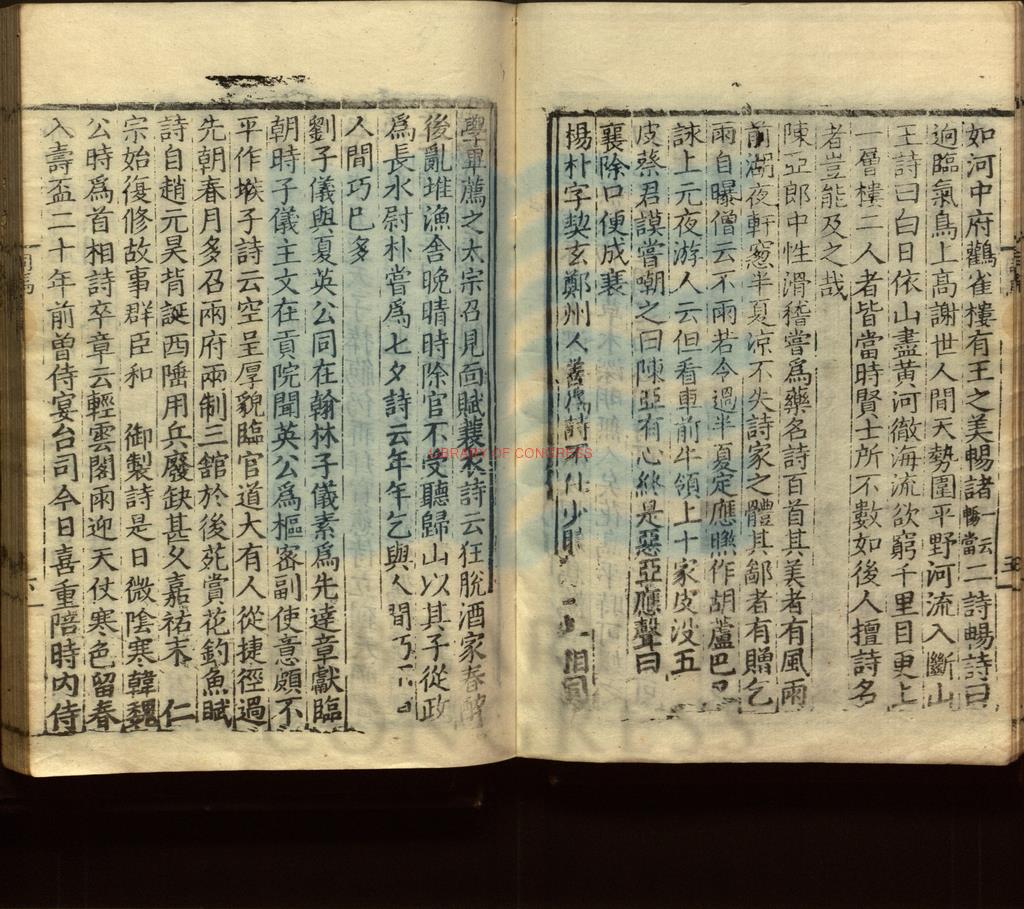 如河中府鸛雀樓有王之美暢諸一云暢當二詩暢詩曰
逈臨氣鳥上高謝世人間天勢圍平野河流入斷山
王詩曰白日依山盡黃河徹海流欲窮千里目更上
一層樓二人者皆當時賢士所不數如後人擅詩名
者豈能及之哉
陳亞郎中性滑稽嘗爲藥名詩百首其美者有風雨
前湖夜軒窓半夏涼不失詩家之體其鄙者有贈乞
雨自曝僧云不雨若令過半夏定應㬠作胡蘆巴又
詠上元夜游人云但看車前牛領上十家皮没五
皮蔡君謨嘗嘲之曰陳亞有心終是惡亞應聲曰
襄除口便成衰
楊朴字契玄鄭州人善爲詩不仕少
學畢薦之太宗召見面賦蓑衣詩云狂脫酒家春醉
後亂堆漁舍晚晴時除官不受聽歸山以其子從政
爲長水尉朴嘗爲七夕詩云年年乞與人間巧
人間巧已多
劉子儀與夏英公同在翰林子儀素爲先達章獻臨
朝時子儀主文在貢院聞英公爲樞密副使意頗不
平作堠子詩云空呈厚貌臨官道大有人從捷徑過
先朝春月多召兩府兩制三舘於後苑賞花釣魚賦
詩自趙元昊背誕西陲用兵廢缺甚乆嘉祐末 仁
宗始復修故事群臣和 御製詩是日微陰寒韓魏
公時爲首相詩卒章云輕雲閣雨迎天仗寒色留春
入壽盃二十年前曾侍宴台司今日喜重陪時内侍
LIBRARY OF CONGRESS